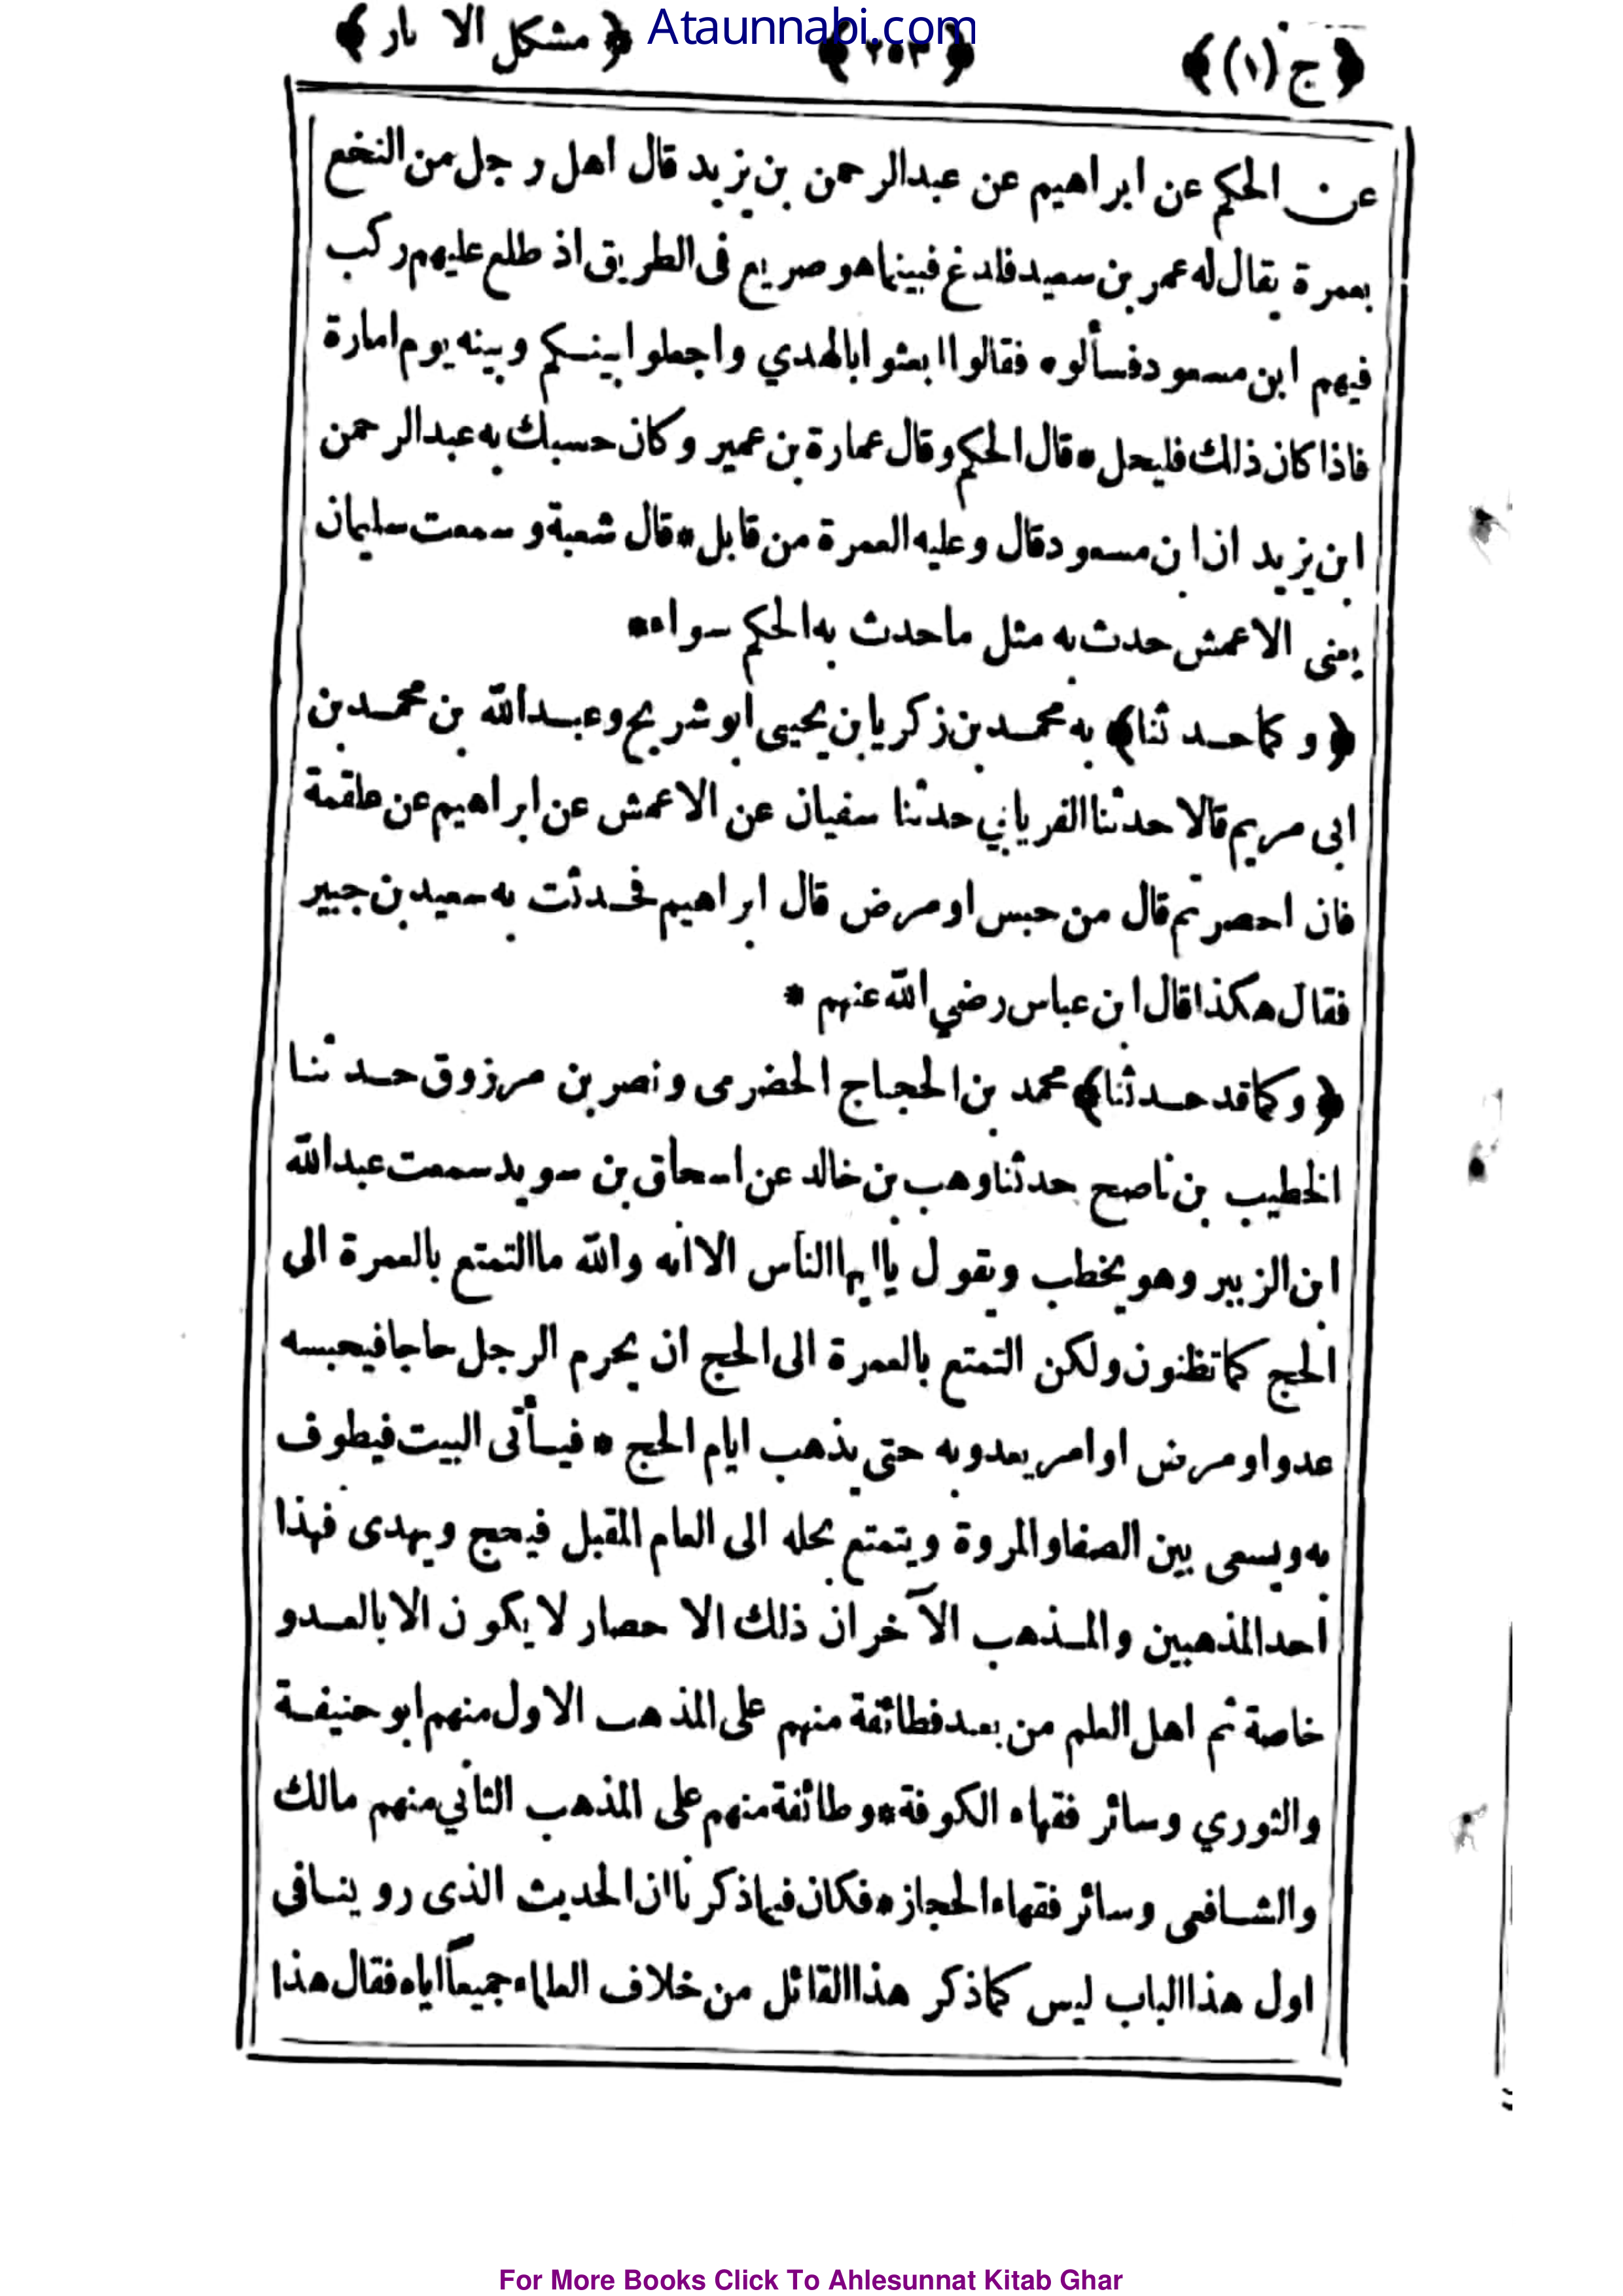 Ataunnabi.com
﴿ج (١)﴾ ﴿٢٥٣﴾ ﴿مشكل الا ثار﴾
عن الحكم عن ابراهيم عن عبدالرحمن بن يزيد قال اهل رجل من النخع
بعمرة يقال له عمر بن سعيد فلدغ فبينما هو صريع فى الطريق اذ طلع عليهم ركب
فيهم ابن مسعود فسألوه فقالوا ابعثوا بالهدي واجعلوا بينكم وبينه يوم امارة
فاذا كان ذلك فليحل * قال الحكم وقال عمارة بن عمير وكان حسبك به عبدالرحمن
ابن يزيد ان ابن مسعود قال وعليه العمرة من قابل * قال شعبة وسمعت سليمان
يعنى الاعمش حدث به مثل ماحدث به الحكم سواء *
﴿و كما حدثنا﴾ به محمد بن زكريا بن يحيى ابو شريح وعبدالله بن محمد بن
ابى مريم قالا حدثنا الفريابي حدثنا سفيان عن الاعمش عن ابراهيم عن علقمة
فان احصرتم قال من حبس او مرض قال ابراهيم فحدثت به سعيد بن جبير
فقال هكذا قال ابن عباس رضي الله عنهم *
﴿وكما قد حدثنا﴾ محمد بن الحجاج الحضرمى ونصر بن مرزوق حدثنا
الخطيب بن ناصح حدثنا وهب بن خالد عن اسحاق بن سويد سمعت عبدالله
ابن الزبير وهو يخطب ويقول ياايها الناس الا انه والله ما التمتع بالعمرة الى
الحج كما تظنون ولكن التمتع بالعمرة الى الحج ان يحرم الرجل حاجا فيحبسه
عدو او مرض او امر يعدو به حتى يذهب ايام الحج * فيأتى البيت فيطوف
به ويسعى بين الصفا والمروة ويتمتع بحله الى العام المقبل فيحج ويهدى فهذا
احد المذهبين والمذهب الآخر ان ذلك الا حصار لا يكون الا بالعدو
خاصة ثم اهل العلم من بعد فطائفة منهم على المذهب الاول منهم ابو حنيفة
والثوري وسائر فقهاء الكوفة * وطائفة منهم على المذهب الثاني منهم مالك
والشافعى وسائر فقهاء الحجاز * فكان فيما ذكرنا ان الحديث الذى روينا فى
اول هذا الباب ليس كما ذكر هذا القائل من خلاف العلماء جميعاً اياه فقال هذا
For More Books Click To Ahlesunnat Kitab Ghar